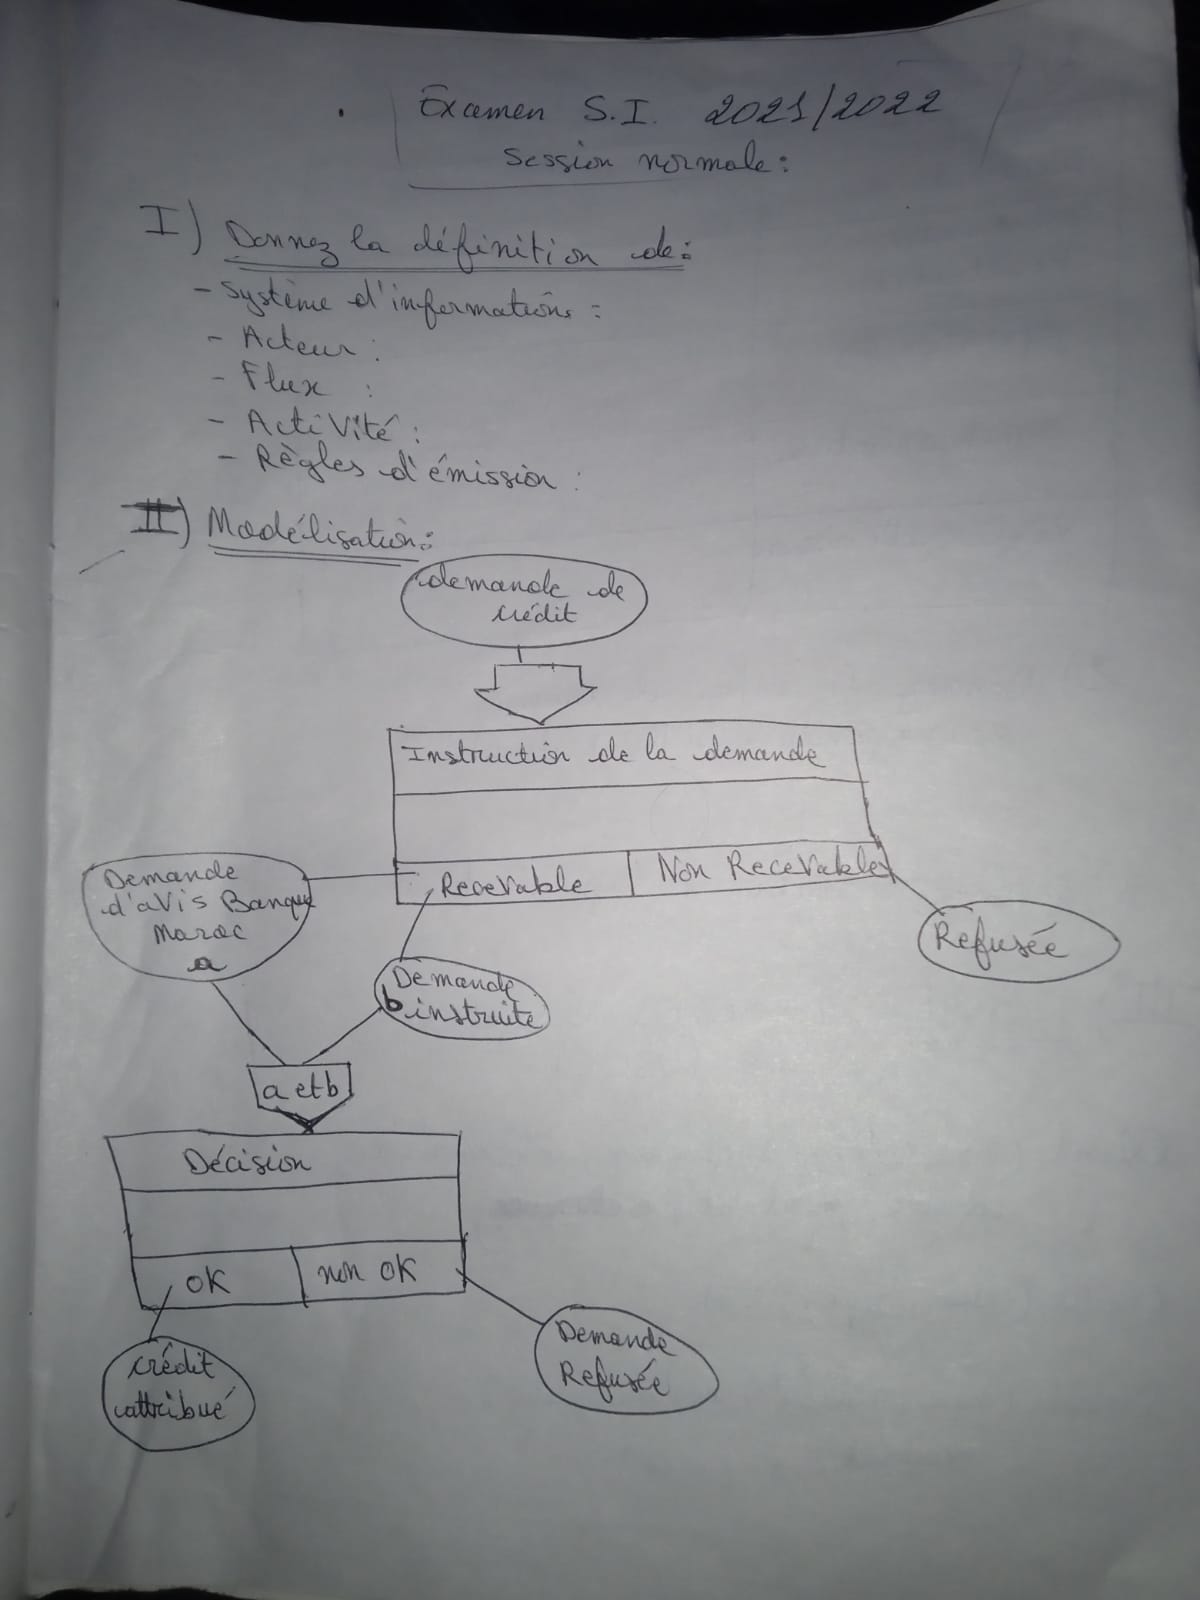 Examen S.I. 2021/2022
Session normale:
I) Donnez la définition de:
- Système d'informations :
- Acteur :
- Flux :
- Activité :
- Règles d'émission :
II) Modélisation:
demande de
crédit
Instruction de la demande
Recevable Non Recevable
Demande
d'avis Banque
Maroc
a
Refusée
Demande
b instruite
a et b
Décision
OK non OK
crédit
attribué
Demande
Refusée